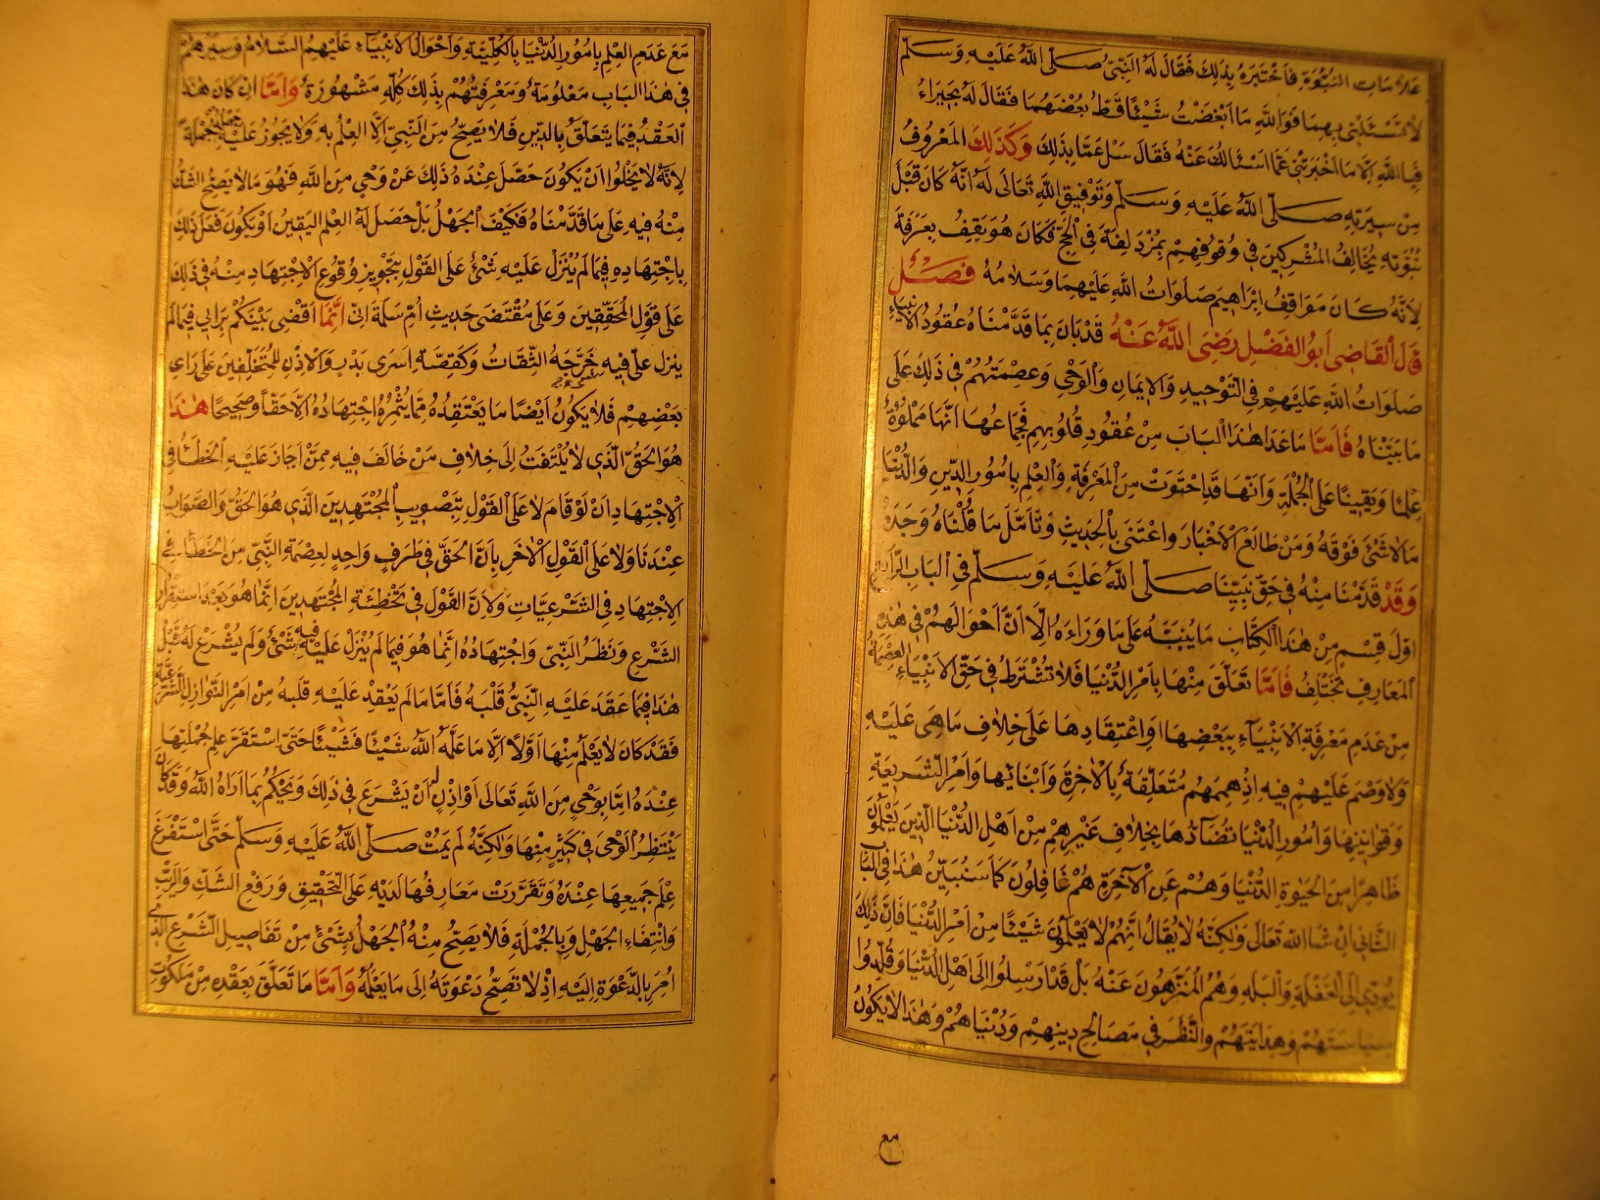 علامات النبوة فاختبره بذلك فقال له النبي صلى الله عليه وسلم
لا تسئلني بهما فوالله ما ابغضت شيئا قط بغضهما فقال له بحيراء
فبالله الا ما اخبرتني عما اسئالك عنه فقال سل عما بذلك وكذلك المعروف
من سيرته صلى الله عليه وسلم وتوفيق الله تعالى له انه كان قبل
نبوته يخالف المشركين في وقوفهم بمزدلفة في الحج فكان هو يقف بعرفة
لانه كان مواقف ابراهيم صلوات الله عليهما وسلامه فصل
قال القاضي ابو الفضل رضي الله عنه قد بان بما قدمناه عقود الانبياء
صلوات الله عليهم في التوحيد والايمان والوحي وعصمتهم في ذلك على
ما بيناه فاما ما عدا هذا الباب من عقود قلوبهم فجماعها انها مملوة
علما ويقينا على الجملة وانها قد احتوت من المعرفة والعلم بامور الدين والدنيا
مالا شئ فوقه ومن طالع الاخبار واعتنى بالحديث وتامل ما قلناه وجده
وقد قدمنا منه في حق نبينا صلى الله عليه وسلم في الباب الرابع
اول قسم من هذا الكتاب ما ينبه على ما وراءه الا ان احوالهم في هذه
المعارف تختلف فاما تعلق منها بامر الدنيا فلا تشترط في حق الانبياء العصمة
من عدم معرفة الانبياء ببعضها او اعتقادها على خلاف ما هي عليه
ولا وصم عليهم فيه اذ هممهم متعلقة بالاخرة وانبائها وامر الشريعة
وقوانينها وامور الدنيا تضادها بخلاف غيرهم من اهل الدنيا الذين يعلمون
ظاهرا من الحيوة الدنيا وهم عن الآخرة هم غافلون كما سنبين هذا في الباب
الثاني ان شا الله تعالى ولكنه لا يقال انهم لا يعلمون شيئا من امر الدنيا فان ذلك
يودي الى الغفلة والبله وهم المنزهون عنه بل قد ارسلوا الى اهل الدنيا وقلدوا
سياستهم وهدايتهم والنظر في مصالح دينهم ودنياهم وهذا لا يكون
مع
مع عدم العلم بامور الدنيا بالكلية واحوال الانبياء عليهم السلام وسيرهم
في هذا الباب معلومة ومعرفتهم بذلك كله مشهورة واما ان كان هذا
العقد فيما يتعلق بالدين فلا يصح من النبي الا العلم به ولا يجوز عليه جهله جملة
لانه لا يخلوا ان يكون حصل عنده ذلك عن وحي من الله فهو مالا يصح الشك
منه فيه على ما قدمناه فكيف الجهل بل حصل له العلم اليقين او يكون فعل ذلك
باجتهاده فيما لم ينزل عليه شئ على القول بتجويز وقوع الاجتهاد منه في ذلك
على قول المحققين وعلى مقتضى حديث ام سلمة اني انما اقضي بينكم براي فيما لم
ينزل علي فيه خرجه الثقات وكقصة اسرى بدر والاذن للمتخلفين على راي
بعضهم فلا يكون ايضا ما يعتقده مما يثمره اجتهاده الا حقا وصحيحا هذا
هو الحق الذي لا يلتفت الى خلاف من خالف فيه ممن اجاز عليه الخطأ في
الاجتهاد ان لو قام لا على القول بتصويب المجتهدين الذي هو الحق والصواب
عندنا ولا على القول الاخر بان الحق في طرف واحد لعصمة النبي من الخطأ في
الاجتهاد في الشرعيات ولان القول في تخطئة المجتهدين انما هو بعد استقرار
الشرع ونظر النبي واجتهاده انما هو فيما لم ينزل عليه فيه شئ ولم يشرع له قبل
هذا فيما عقد عليه النبي قلبه فاما ما لم يعقد عليه قلبه من امر النوازل الشرعية
فقد كان لا يعلم منها اولا الا ما علمه الله شيئا فشيئا حتى استقر علم جملتها
عنده اما بوحي من الله تعالى او اذن له ان يشرع في ذلك ويحكم بما اراه الله وقد كان
ينتظر الوحي في كثير منها ولكنه لم يمت صلى الله عليه وسلم حتى استفرغ
علم جميعها عنده وتقررت معارفها لديه على التحقيق ورفع الشك والريب
وانتفاء الجهل وبالجملة فلا يصح منه الجهل بشئ من تفاصيل الشرع الذي
امر بالدعوة اليه اذ لا تصح دعوته الى ما يعلمه واما ما تعلق بعقده من ملكوت